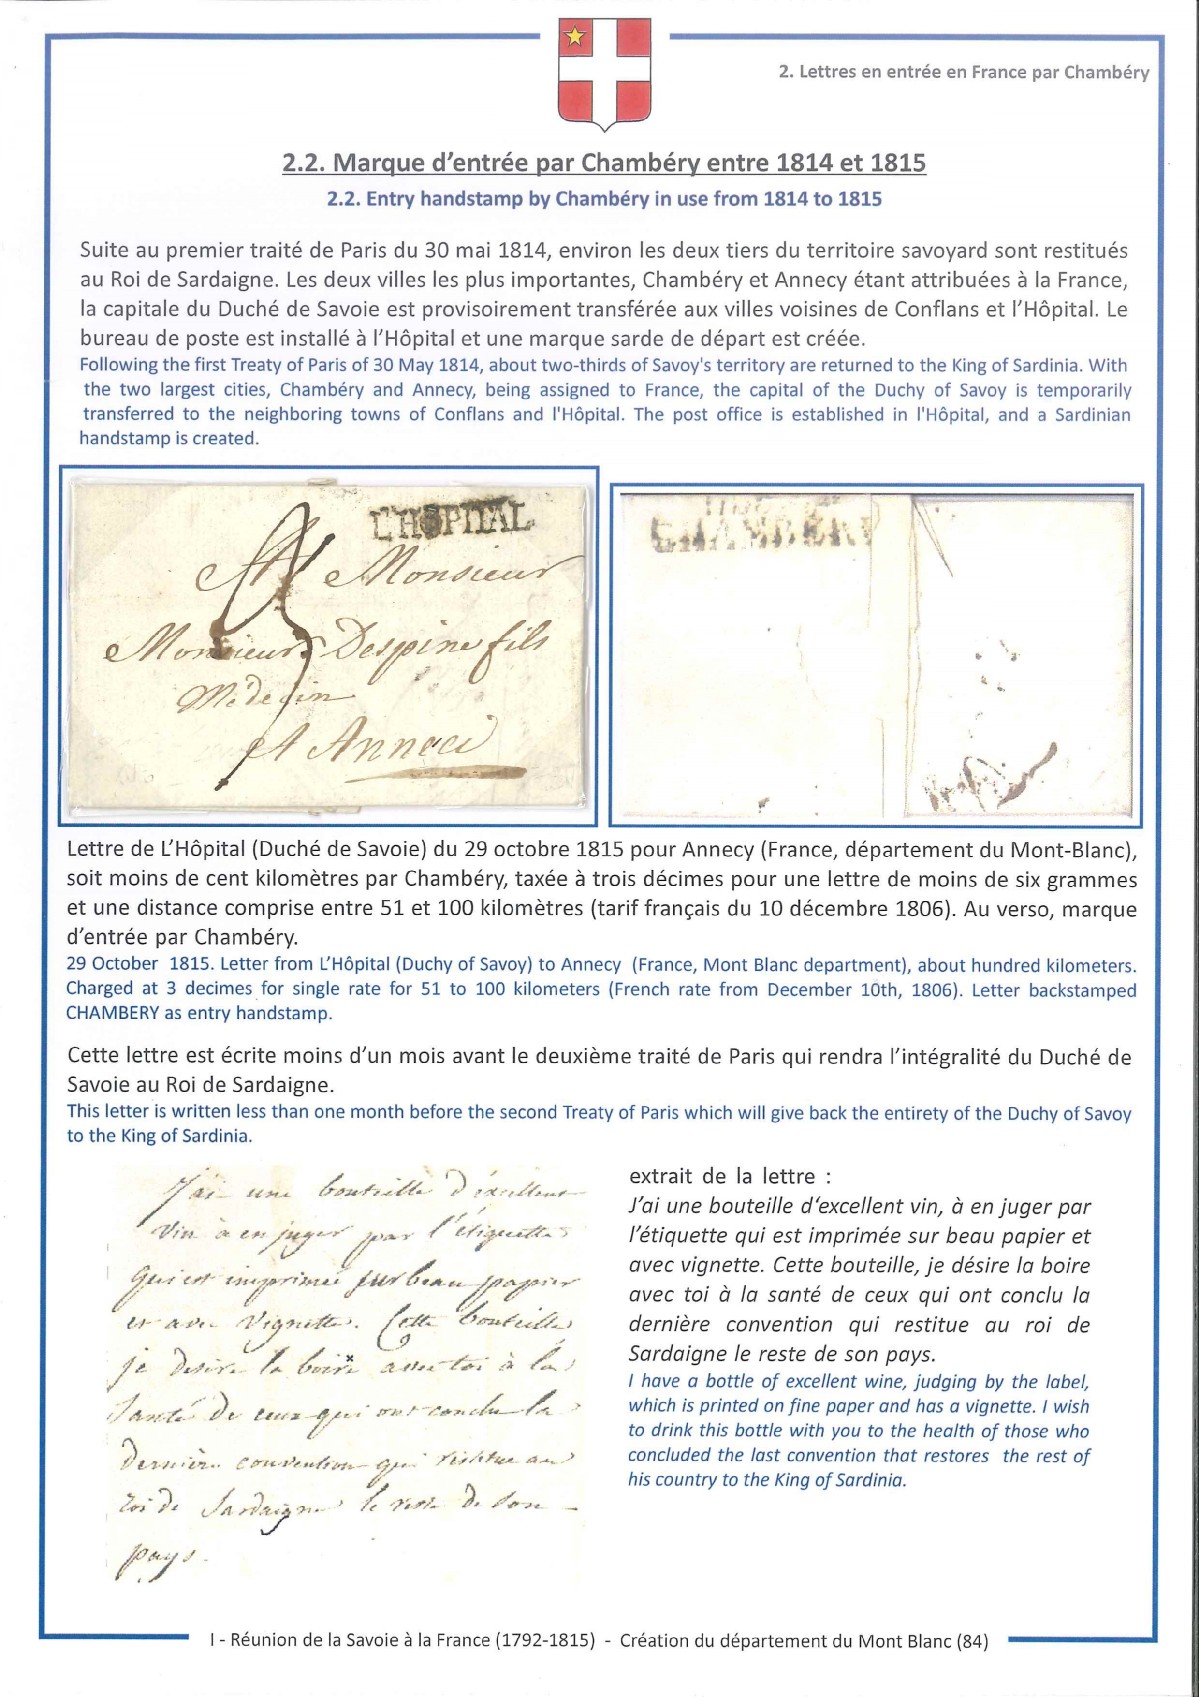 2. Lettres en entrée en France par Chambéry
2.2. Marque d'entrée par Chambéry entre 1814 et 1815
2.2. Entry handstamp by Chambéry in use from 1814 to 1815
Suite au premier traité de Paris du 30 mai 1814, environ les deux tiers du territoire savoyard sont restitués
au Roi de Sardaigne. Les deux villes les plus importantes, Chambéry et Annecy étant attribuées à la France,
la capitale du Duché de Savoie est provisoirement transférée aux villes voisines de Conflans et l'Hôpital. Le
bureau de poste est installé à l'Hôpital et une marque sarde de départ est créée.
Following the first Treaty of Paris of 30 May 1814, about two-thirds of Savoy's territory are returned to the King of Sardinia. With
the two largest cities, Chambéry and Annecy, being assigned to France, the capital of the Duchy of Savoy is temporarily
transferred to the neighboring towns of Conflans and l'Hôpital. The post office is established in l'Hôpital, and a Sardinian
handstamp is created.
L'HÔPITAL
A Monsieur
Monsieur Despine fils
Médecin
A Anneci
CHAMBERY
Lettre de L'Hôpital (Duché de Savoie) du 29 octobre 1815 pour Annecy (France, département du Mont-Blanc),
soit moins de cent kilomètres par Chambéry, taxée à trois décimes pour une lettre de moins de six grammes
et une distance comprise entre 51 et 100 kilomètres (tarif français du 10 décembre 1806). Au verso, marque
d'entrée par Chambéry.
29 October 1815. Letter from L'Hôpital (Duchy of Savoy) to Annecy (France, Mont Blanc department), about hundred kilometers.
Charged at 3 decimes for single rate for 51 to 100 kilometers (French rate from December 10th, 1806). Letter backstamped
CHAMBERY as entry handstamp.
Cette lettre est écrite moins d'un mois avant le deuxième traité de Paris qui rendra l'intégralité du Duché de
Savoie au Roi de Sardaigne.
This letter is written less than one month before the second Treaty of Paris which will give back the entirety of the Duchy of Savoy
to the King of Sardinia.
J'ai une bouteille d'éxcellent
vin à en juger par l'étiquette
qui est imprimée sur beau papier
et avec vignette. Cette bouteille
je desire la boire avec toi à la
Santé de ceux qui ont conclu la
dernière convention qui restitue au
roi de Sardaigne le reste de son
pays.
extrait de la lettre :
J'ai une bouteille d'excellent vin, à en juger par
l'étiquette qui est imprimée sur beau papier et
avec vignette. Cette bouteille, je désire la boire
avec toi à la santé de ceux qui ont conclu la
dernière convention qui restitue au roi de
Sardaigne le reste de son pays.
I have a bottle of excellent wine, judging by the label,
which is printed on fine paper and has a vignette. I wish
to drink this bottle with you to the health of those who
concluded the last convention that restores the rest of
his country to the King of Sardinia.
I - Réunion de la Savoie à la France (1792-1815) - Création du département du Mont Blanc (84)